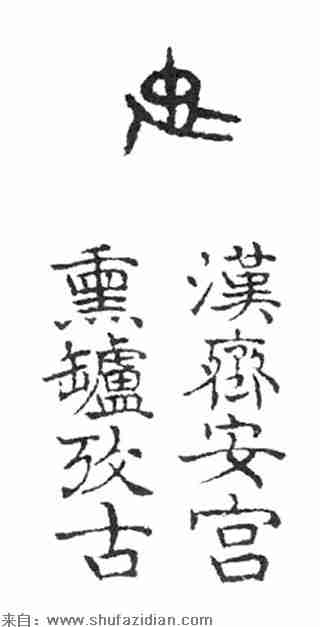 漢齊安宮
熏罏攷古
来自：www.shufazidian.com